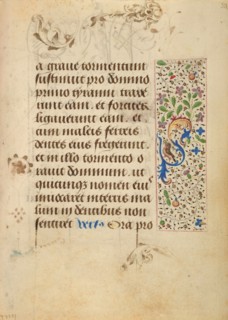 a graue tormentum
sustinuit pro domino
primo tyranni traxe
runt eam. et fortiter
ligauerunt eam. et
cum malleis ferreis
dentes eius fregerunt.
et in illo tormento o
rauit dominum. ut
quicunqz nomen eius
inuocaret in terris ma
lum in dentibus non
sentiret vers9 Ora pro